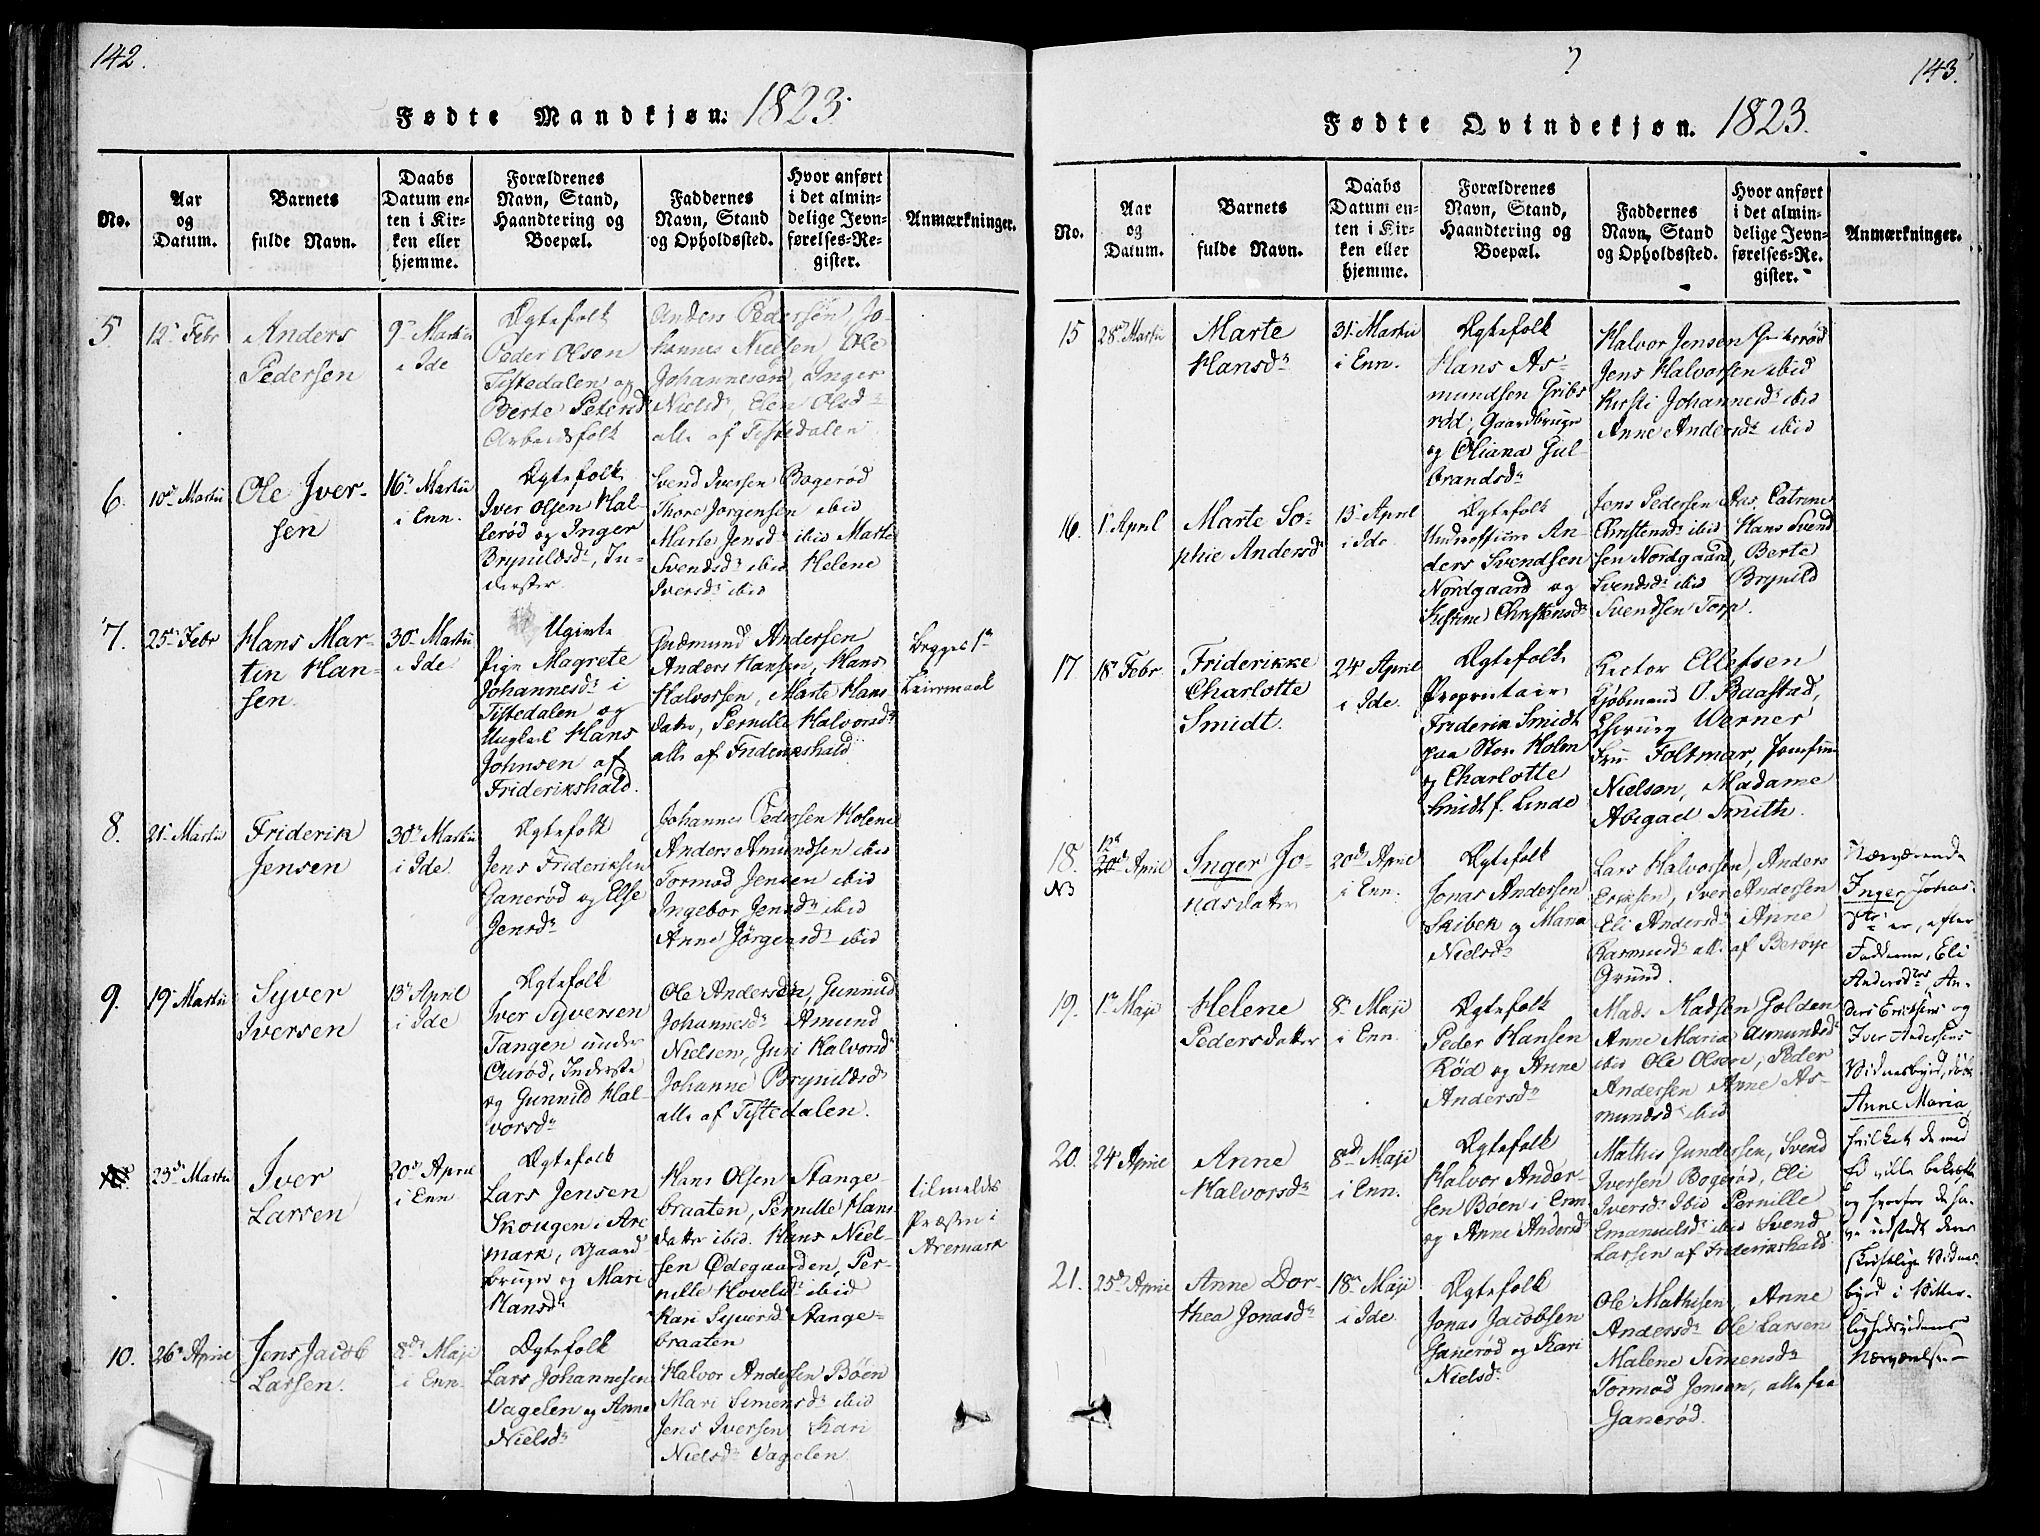 142.
Fødte Mandkjøn: 1823.
No.
Aar
og
Datum.
Barnets
fulde Navn.
Daabs
Datum en-
ten i Kir-
ken eller
hjemme.
Forældrenes
Navn, Stand,
Haandtering og
Boepæl.
Faddernes
Navn, Stand
og Opholdssted.
Hvor anført
i det almin-
delige Jevn-
førelses-Re-
gister.
Anmærkninger.
5
12 Febr
Anders
Pedersen
9 Martii
i Ide
Ægtefolk
Peder Olsen
Tistedalen og
Berte Petersd
Arbeidsfolk
Anders Pedersen, Jo-
hannes Nielsen, Ole
Johannesen, Inger
Nielsd, Elen Olsd
alle af Tistedalen
6.
10 Martii
Ole Iver-
sen
16 Martii
i Enn.
Ægtefolk
Iver Olsen Hal-
lerød og Inger
Brynildsd, In-
derster
Svend Iversen Bogerød
Thore Jørgensen ibid
Marte Jensd ibid Marte
Svendsd ibid Helene
Iversd ibid
7.
25 Febr
Hans Mar-
tin Han-
sen.
30 Martii
i Ide
Ugivte
Pige Magrete
Johannesd i
Tistedalen og
Ungkarl Hans
Johnsen af
Friderikshald.
Gudmund Andersen
Anders Hansen, Hans
Halvorsen, Marte Hans
datter, Pernille Halvorsd
alle af Friderikshald
begges 1
Leiermaal
8.
21 Martii
Friderik
Jensen
30 Martii
i Ide
Ægtefolk
Jens Frideriksen
Ganerød og Else
Jensd
Johannes Pedersen Holene
Anders Amundsen ibid
Tormod Jensen ibid
Ingebor Jensd ibid
Anne Jørgensd ibid
9.
19 Martii
Syver
Iversen
13 April
i Ide
Ægtefolk
Iver Syversen
Tangen under
Ourød, Inderste
og Gunnild Hal-
vorsd
Ole Andersen, Gunnild
Johannesd Amund
Nielsen, Guri Halvorsd
Johanne Brynildsd
alle af Tistedalen.
23 Martii
Iver
Larsen
20 April
i Enn
Ægtefolk
Lars Jensen
Skougen i Are
mark, Gaard
bruger og Mari
Hansd
Hans Olsen Stange-
braaten, Pernille Hans
datter ibid. Hans Niel-
sen Ødegaarden, Per-
nille Hovelsd ibid
Kari Syversd Stange-
braaten
tilmeldt
Præsten i
Aremark
10.
26 April
Jens Jacob
Larsen.
8 Maji
i Enn.
Ægtefolk
Lars Johannesen
Vagelen og Anne
Nielsd
Halvor Andersen Bøen
Mari Simensd ibid
Jens Iversen Kari
Nielsd Vagelen
?
143.
Fødte Qvindekjøn. 1823.
No.
Aar
og
Datum.
Barnets
fulde Navn.
Daabs
Datum en-
ten i Kir-
ken eller
hjemme.
Forældrenes
Navn, Stand,
Haandtering og
Boepæl.
Faddernes
Navn, Stand
og Opholdssted.
Hvor anført
i det almin-
delige Jevn-
førelses-Re-
gister.
Anmærkninger.
15
28 Martii
Marte
Hansd
31 Martii
i Enn.
Ægtefolk
Hans As-
mundsen Gribs
rød, Gaardbruger
og Oliana Gul-
brandsd
Halvor Jensen Gribsrød
Jens Halvorsen ibid
Kirsti Johannesd ibid
Anne Andersd ibid
16.
1 April
Marte So-
phie Andersd
13 April
i Ide
Ægtefolk
Underofficer An-
ders Svendsen
Nordgaard og
Kistine Christensd
Jens Pedersen Aas, Catrine
Christensd ibid Hans Svend
sen Nordgaard, Berte
Svendsd ibid Brynild
Svendsen Torp.
17.
18 Febr
Friderikke
Charlotte
Smidt.
24 April
i Ide.
Ægtefolk
Proprietair
Friderik Smidt
paa Stor Holen
og Charlotte
Smidt f. Linde
Rector Ellefsen
Kjøbmand O. Baastad,
Chirurg Werner
Fru Foltmar, Jomfrue
Nielsen, Madame
Abigael Smith.
18.
NB
20 April
Inger Jo-
nasdatter
20 April
i Enn.
Ægtefolk
Jonas Andersen
Skibek og Maria
Nielsd
Lars Halvorsen, Anders
Eriksen, Iver Andersen
Eli Andersd Anne
Rasmusd alle af Berbye
Grund.
Nærværende
Inger Jonas-
er, efter
Fadderne, Eli
Andersd, An-
ders Erichsens og
Iver Andersens
Vidnesbyrd, døbt
Anne Maria,
hvilket de med
Ed ville bekræfte
og hvorfor de ha-
ve udstedt deres
skriftlige Vidnes-
byrd i Vitter-
lighedsvidners
Nærværelse.
19.
1 Maji
Helene
Pedersdatter
8 Maji
i Enn.
Ægtefolk
Peder Hansen
Rød og Anne
Andersd
Mads Madsen Golden
Anne Maria Asmundsd
ibid Ole Olsen, Peder
Andersen Anne As-
mundsd ibid
20.
24 April
Anne
Halvorsd
8 Maji
i Enn.
Ægtefolk
Halvor Ander-
sen Bøen i Enn
og Anne Andersd
Mathis Gundersen, Svend
Iversen Bogerød, Eli
Iversd Ibid Pernille
Emanuelsd ibid Svend
Larsen af Friderikshald
21.
25 April
Anne Dor-
thea Jonasd
18 Maji
i Ide.
Ægtefolk
Jonas Jacobsen
Ganerød og Kari
Nielsd
Ole Mathisen, Anne
Andersd Ole Larsen
Malene Simensd
Tormod Jonsen, alle fra
Ganerød.